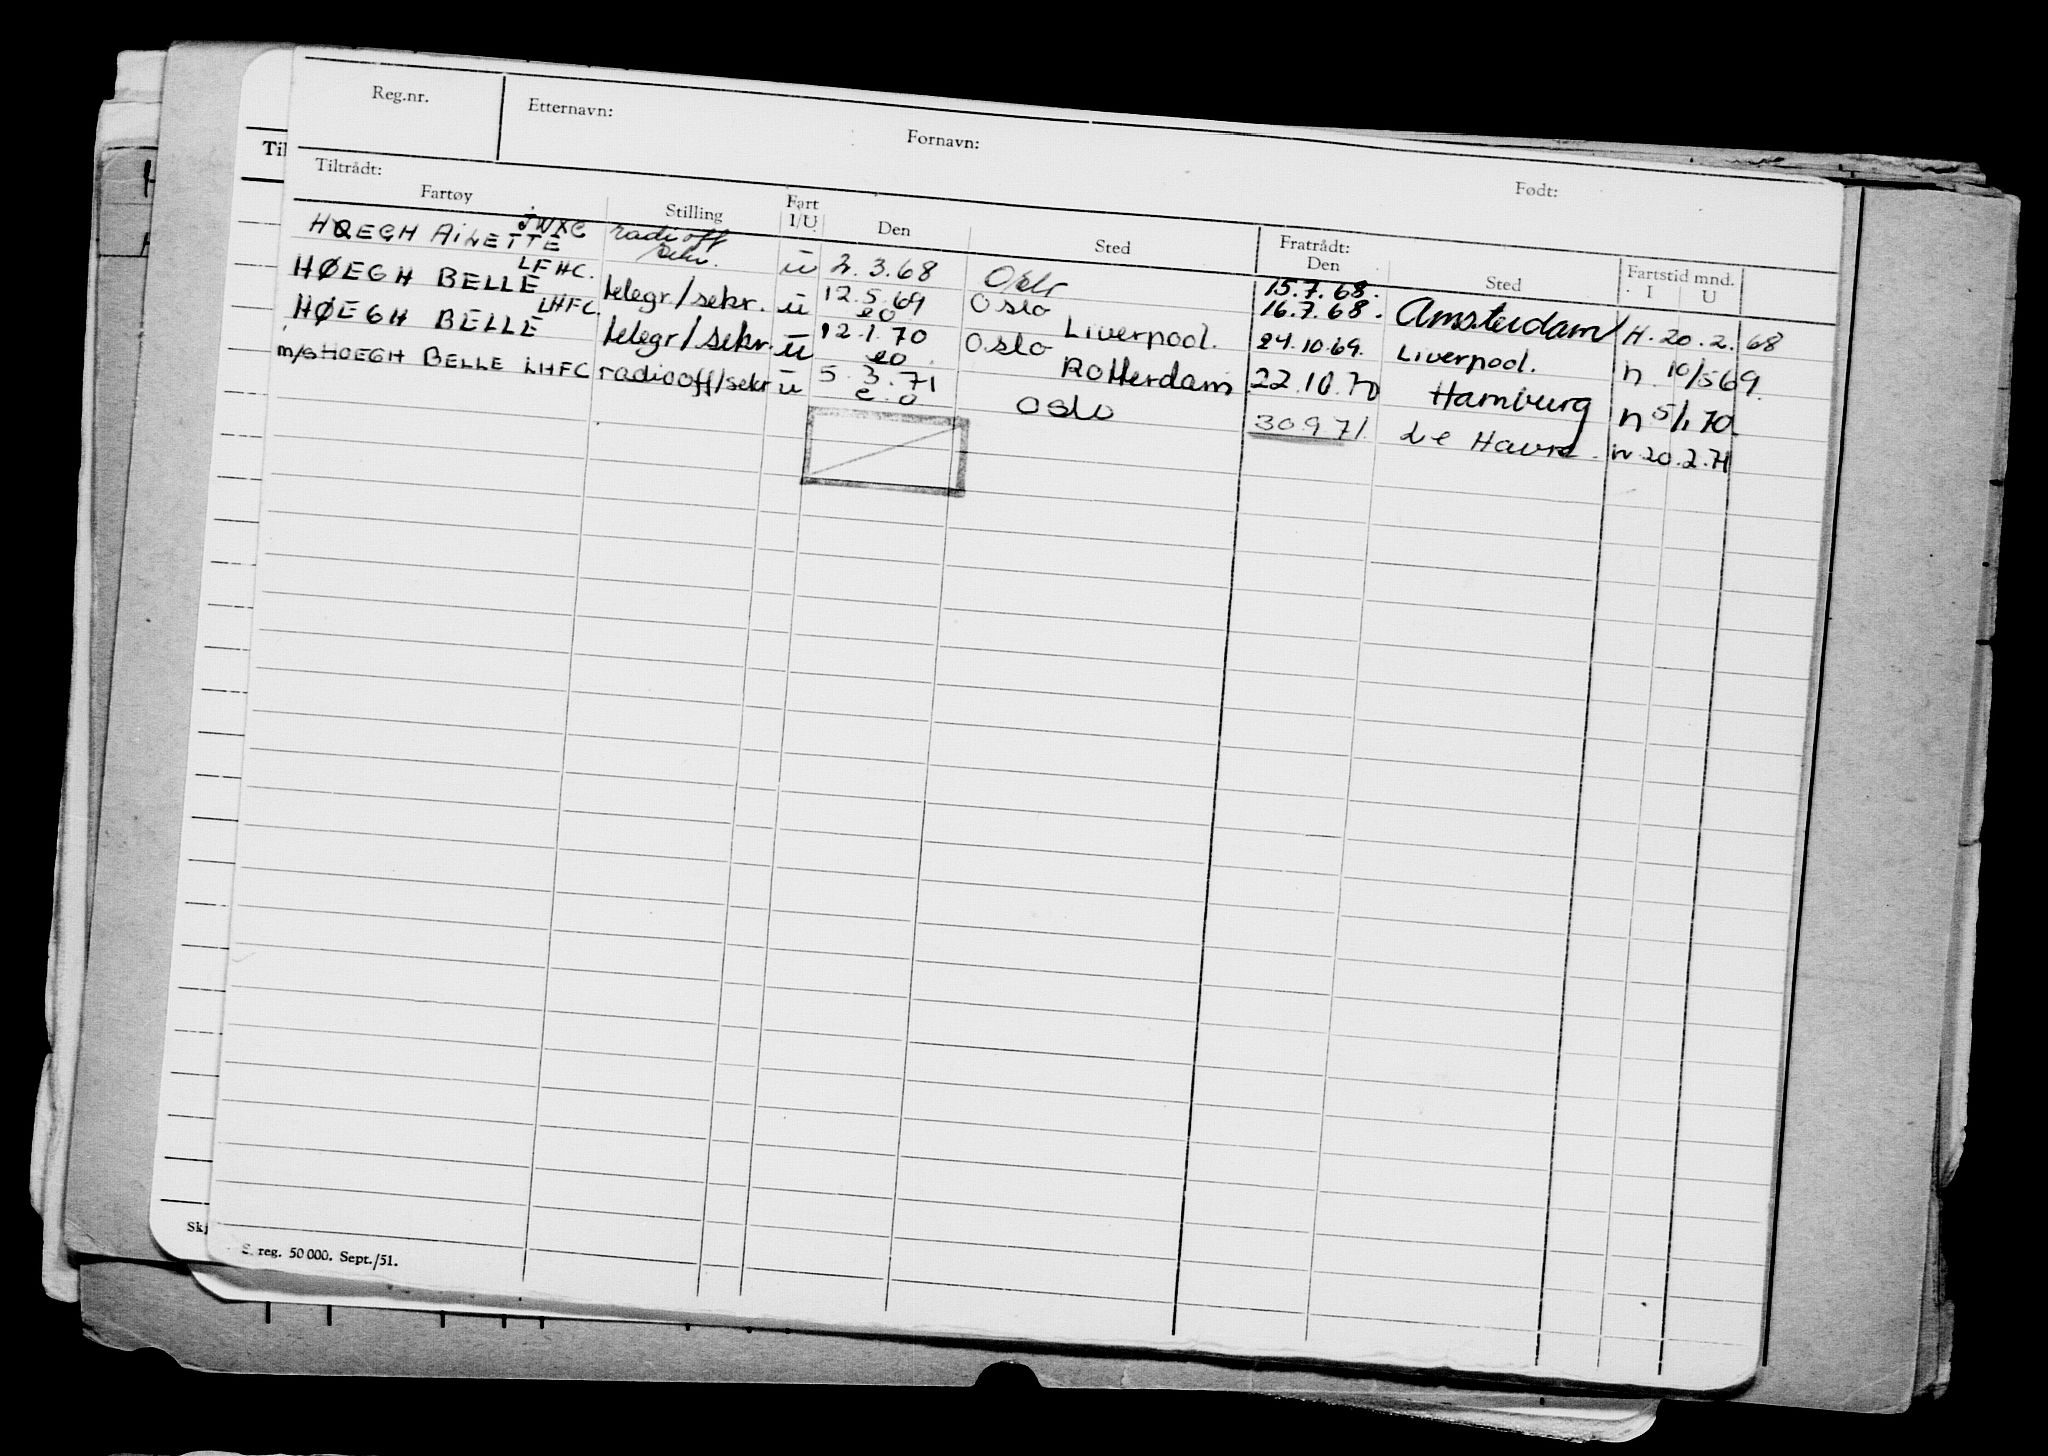 Reg.nr. Etternavn: Fornavn: Født:
Til
Tiltrådt: Fratrådt:
Fartøy Stilling Fart I/U Den Sted Den Sted Fartstid mnd. I U
JWXC radiooff
HØEGH AILETTE sekr. u 2.3.68 Oslo 15.7.68.
LFHC. 16.7.68. Amsterdam H. 20.2.68
HØEGH BELLE telegr/sekr. u 12.5.69 Oslo
LHFC. eo Liverpool. 24.10.69. Liverpool. n 10/5 69.
HØEGH BELLE telegr/sekr. u 12.1.70 Oslo
eo Rotterdam 22.10.70 Hamburg n 5/1 70
m/s HOEGH BELLE LHFC radiooff/sekr u 5.3.71
e.o Oslo 30.9.71. Le Havre. n. 20.2.71
Skj
S. reg. 50 000. Sept./51.